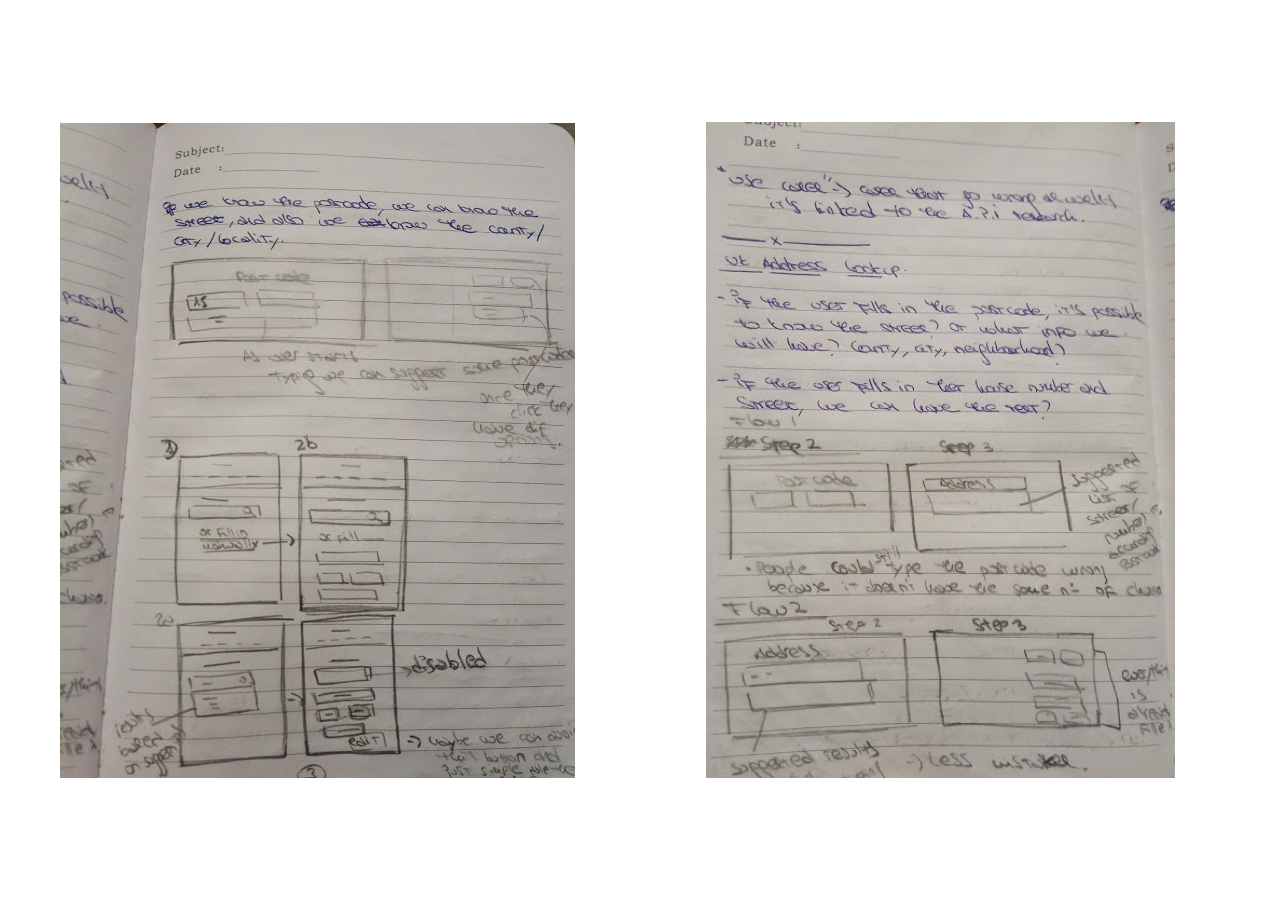 Subject:
Date :
if we know the postcode, we can know the
street, and also we know the county/
city/locality.
Post code
15
As user starts
typing we can suggest some postcodes
once they
click they
have dif
options.
1)
2b
or fill in
manually
or fill
2a
results
based
on
disabled
edit
→ maybe we can avoid
this button and
just simple
3
Subject:
Date :
"Use cases" → cases that go wrong as well
it's linked to the A.P.i research.
x
UK Address Lookup.
- if the user fills in the postcode, it's possible
to know the street? Or what info we
will have? County, city, neighborhood?
- if the user fills in ther house number and
street, we can have the rest?
Flow 1
Step 2
Step 3
Post code
Address
suggested
list of
street/
number
according
• People could still type the postcode wrong
because it doesn't have the same nº of
Flow 2
Step 2
Step 3
Address
everythin
is
alread
fille
suggested results
→ Less mistake.